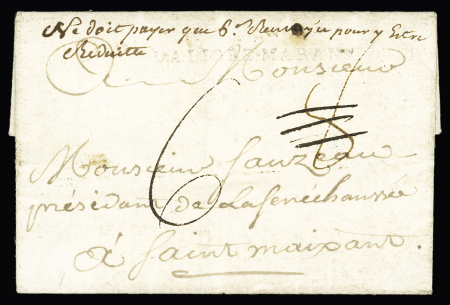 Ne doit payer que 6.s Renvoyée pour y Estre
Reduitte
A Monsieur
6 8
Monsieur Sauzeau
présidant de La Senéchaussée
à Saint maixant.